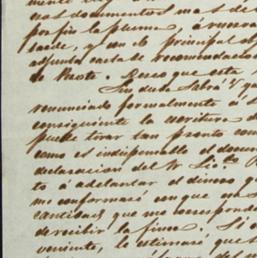 mente
nos documentos mas de
por fin la pluma, á reserva
tarde, y un el principal obj
adjunta carta de recomendacion
de Prote. Deseo que esta
Sin duda Sabrá V. que
renunciado formalmente á
consiguiente la escritura d
puede tirar tan pronto com
como es indispensable el docum
declaracion del Sr Lic.do
to á adelantar el dinero q
me conformaré con que un
cantidad que me correspond
describir la finca. Si
veniente, lo estimaré que
del